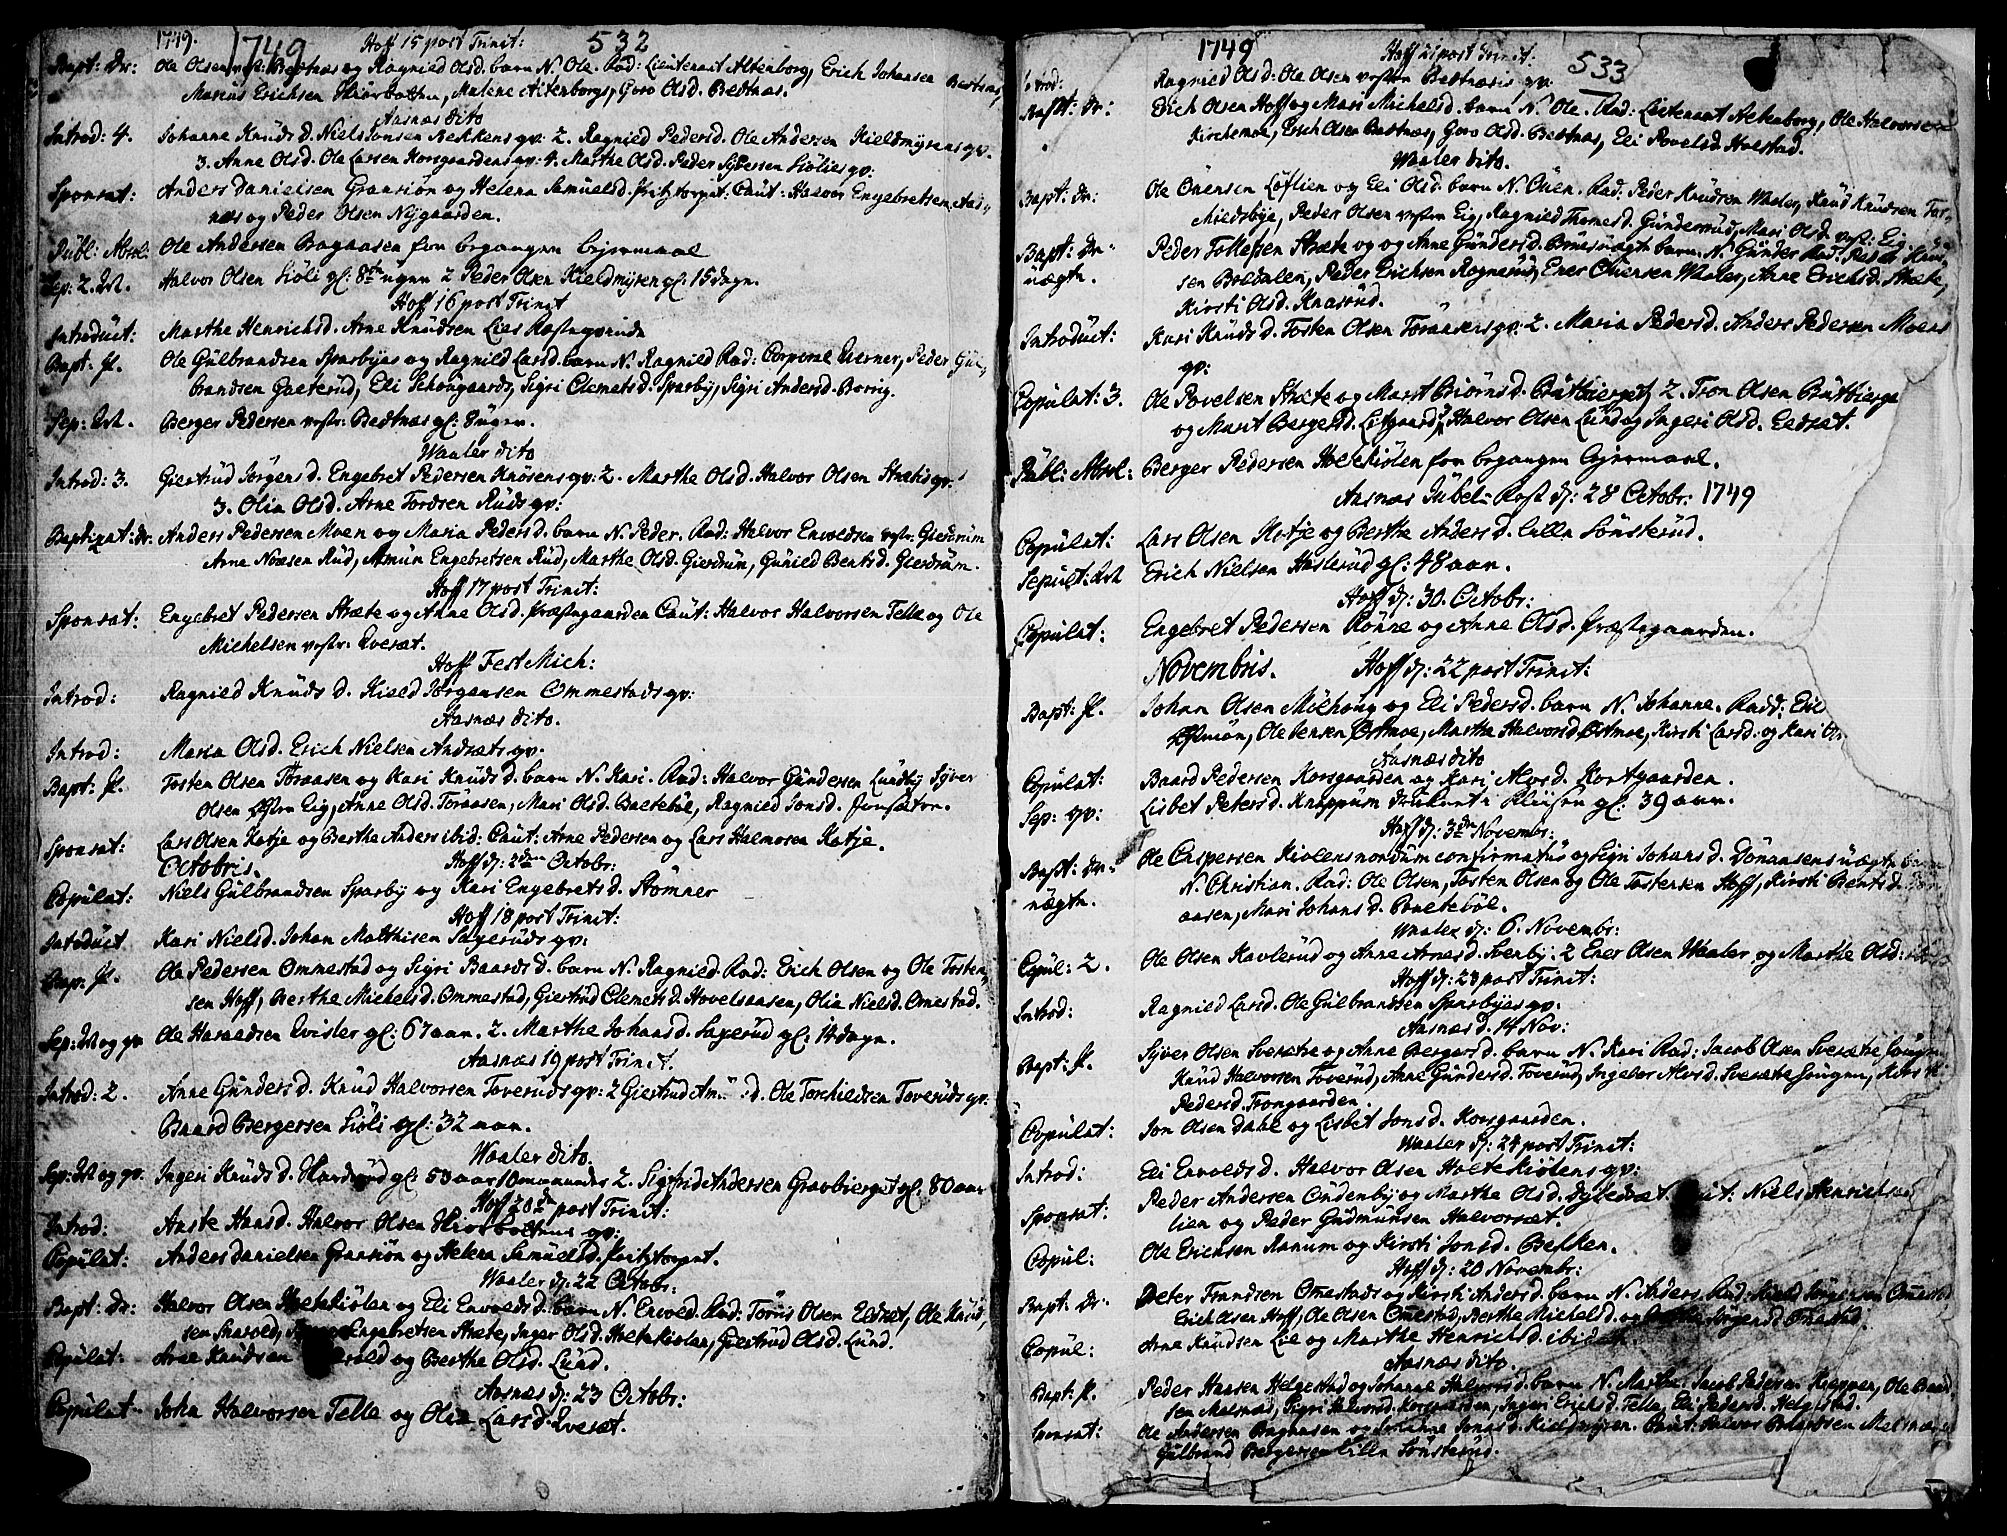 1749. 1749 Hoff 15 post Trinit: 532
Bapt: Dr: Ole Olsen vestr: Bestnæs og Ragnild Olsd. barn N. Ole. Fad: Lieutenant Altenborg, Erich Johansen Bestnæs,
Marcus Erichsen Skiærbotten, Malene Altenborgs, Goro Olsd. Bestnæs.
Aasnæs dito
Introd: 4. Johanne Knüdsd. Niels Jonsen Bekkens qv: 2. Ragnild Pedersd. Ole Andersen Kieldmyrens qv.
3. Anne Olsd. Ole Larsen Korsgaardens qv: 4. Marthe Olsd. Peder Syversen Siölies qv:
Sponsat: Anders Danielsen Gransiøn og Helena Samuelsd. fritztorpet. Caut: Halvor Engebretsen Aas-
næs og Peder Olsen Nygaarden.
Publ: Absol: Ole Andersen Bragaasen for begangen leyermaal
Sep: 2. M. Halvor Olsen Siöli gl: 8te ugen 2 Peder Olsen Kieldmyren gl: 15 dagn.
Hoff 16 post Trinit
Introduct: Marthe Henrichsd. Arne Knüdsen Lies
Bapt: fl. Ole Gülbrandsen Sparbyes og Ragnild Larsd. barn N. Ragnild Fad: Corporal Werner, Peder Gül-
brandsen Gaaterud, Eli Schougaards, Sigri Clemetsd. Sparby, Sigri Andersd. Borrig.
Sep: M. Berger Pedersen vestr: Bestnæs gl: 8 ugen.
Waaler dito
Introd: 3. Giertrud Jörgensd. Engebret Pedersen Knüsens qv: 2. Marthe Olsd. Halvor Olsen Stræthes qv:
3. Olia Olsd. Arne Tordsen Rüds qv:
Baptizat: dr: Anders Pedersen Moen og Maria Pedersd. barn N. Peder. Fad: Halvor Envoldsen vestr: Gierdrüm
Arne Noæsen Rüd, Amün Engebretsen Rüd, Marthe Olsd. Gierdrüm, Gunild Bentsd. Gierdrüm.
Hoff 17 post Trinit:
Sponsat: Engebret Pedersen Stræte og Anne Olsd. fræstegaarden Caut: Halvor Halvorsen Telle og Ole
Michelsen vestr: Qvesæt.
Hoff Fest Mich:
Introd: Ragnild Knüdsd. Kield Jörgensen Ommestads qv:
Aasnæs dito.
Introd: Maria Olsd. Erich Nielsen Andræts qv.
Bapt: fl. Tosten Olsen Toraasen og Kari Knüdsd. barn N. Kari. Fad: Halvor Gündersen Lundby Syver
Olsen Østen Eig, Anne Olsd. Toraasen, Mari Olsd. Baltebøl, Ragnild Jonsd. fensætre.
Sponsat: Lars Olsen Hatje og Berthe Anders ibid: Caut: Arne Pedersen og Lars Halmosen Hatje.
Octobris. Hoff d: 2den Octobr:
Copulat: Niels Gülbrandsen Sparby og Kari Engebretsd. Stømner
Hoff 18 post Trinit:
Intoduct Kari Nielsd. Johan Matthisen Sagerüds qv:
Bap: fl. Ole Pedersen Ommestad og Sigri Baardsd. barn N. Ragnild. Fad: Erich Olsen og Ole Tosten-
sen Hoff, Berthe Michelsd. Ommestad, Giertrud Clemetsd. Hovelsaasen, Olia Nielsd. Omestad.
Sep: M og qv Ole Haraldsen Qvisler gl: 67 aar. 2. Marthe Johansd. Sagerüd gl: 14 dagn.
Aasnæs 19 post Trinit.
Introd: 2. Anne Gündersd. Knüd Halvorsen Toverüds qv: 2 Giertrud Am d. Ole Torchildsen Toverüds qv.
Baard Bergersen Siöli gl: 32 aar.
Waaler dito
Sep: M og qv. Ingeri Knüdsd. gl: 50 aar 10 maaneder 2. Sigfrid Andersen Gravbierget gl: 80 aar
Hoff 20de post Trinit:
Introd: Anste Hansd. Halvor Olsen Skierbottens qv:
Copulat: Anders Danielsen Gransiøn og Helena Samuelsd. fritztorpet.
Waaler d: 22 Octobr:
Bapt: Dr: Halvor Olsen Holtekiølen og Eli Envoldsd. barn N. Envold. Fad: Törris Olsen Eedsæt, Ole Knüd-
sen Skarold, Engebretsen Stræte, Inger Olsd. Holtekiölen, Giertrud Olsd. Lund.
Copulat: Arne Knüdsen old og Berthe Olsd. Lund.
Aasnæs d: 23 Octobr:
Copulat John Halvorsen Telle og Olia Larsd. Qvesæt.
1749 Hoff 21 post Trinit: 533
Introd: Ragnild Olsd: Ole Olsen vestre Bestnæsis qv.
Bapt: dr: Erich Olsen Hoff og Mari Michelsd. barn N. Ole. Fad: Lieutenant Altenborg, Ole Halvorsen
Kirchemoe, Erich Olsen Bestnæs, Goro Olsd. Bestnæs, Eli Povelsd. Holstad.
Waaler dito.
Bapt: dr: Ole Ouensen Löflien og Eli Olsd. barn N. Ouen. Fad: Peder Knudsen Waaler, Knüd Knüdsen Tor-
Miedsbye, Peder Olsen vestre Eig, Ragnild Thomesd. Gündersrud, Mari Olsd. vest: Eig
Bapt: Dr: Peder Tollefsen Stræte og og Anne Gündersd. barn N. Günder Fad: Peder Han-
uægte. sen Boldalen, Peder Erichsen Rognerud, Ener Ouensen Waaler, Anne Erichsd. Stræte,
Kirsti Olsd. Knasrud.
Introduct: Kari Knüdsd. Tosten Olsen Toraasens qv: 2. Maria Pedersd. Anders Pedersen Moens
qv:
Copulat: 3. Ole Povelsen Stræte og Marit Biörnsd. Bratbierget 2. Tron Olsen Bratbierge
og Marit Bergersd. Lütgaard, Halvor Olsen Lund og Ingeri Olsd. Eedsæt.
Publ: Absol: Berger Pedersen Holtekiölen for begangen leyermaal.
Aasnæs Jubel-Fest d: 28 Octobr: 1749
Copulat: Lars Olsen Hotje og Berthe Andersd. Lille Sönsterud.
Sepult: M Erich Nielsen Haslerud gl: 48 aar.
Hoff d: 30. Octobr:
Copulat: Engebret Pedersen Rönne og Anne Olsd. præstegaarden.
Novembris. Hoff d: 22 post Trinit:
Bapt: fl. Johan Olsen Milhong og Eli Pedersd. barn N. Johanne. Fadd: Eric
Ole Jensen Østmoe, Marthe Halvorsd Østmoe, Kirsti Larsd. og Kari
Aasnæs dito
Copulat: Baard Pedersen Korsgaarden og Kari Alvsd. Kortgaarden.
Sep: qv: Lisbet Petersd. Knappum druknet i Kluusen gl: 39 aar.
Hoff d: 3de Novembr:
Bapt: dr: Ole Caspersen Kiölens nondum confirmatus og Sigri Johansd. Dömansens uægte barn
uægte. N. Christian. Fad: Ole Olsen, Tosten Olsen og Ole Tostensen Hoff, Kirsti Bentsd.
aasen, Mari Johansd. Baltebøl.
Waaler d: 6. Novembr:
Copul: 2. Ole Olsen Kavlerud og Anne Arnesd. Svenby. 2 Ener Olsen Waaler og Marthe Olsd:
Hoff d: 23 post Trinit:
Introd: Ragnild Larsd. Ole Gülbrandsen Sparbyes qv:
Aasnæs d. 14 Nov:
Bapt: fl. Syver Olsen Svesætre og Anne Bergersd. barn N. Kari Fad: Jacob Olsen Svesætre
Knüd Halvorsen Toverüd, Anne Gündersd. Toverud, Ingebor Alvsd. Svesæte Hougen, Kirsti
Pedersd. Trongaarden.
Copulat: Jon Olsen Dahl og Lisbet Jonsd. Korsgaarden.
Waaler d: 24 post Trinit:
Introd: Eli Envoldsd. Halvor Olsen Holtekiölens qv:
Sponsat: Peder Andersen Eindenby og Marthe Olsd. Dyledræt. Caut: Niels Henrichsen
lien og Peder Gudmunsen Halvorsæt.
Copul: Ole Erichsen Ranum og Kirsti Jonsd. Bekken.
Hoff d: 20 Novembr:
Bapt: Dr: Peter Trondsen Omestads og Kirsti Andersd. barn N. Anders. Fad: Kield Jörgensen Omestad
Erich Olsen Hoff, Ole Olsen Omestad, Berthe Michelsd. og Jörgensd Omestad.
Copul: Arne Knüdsen Lie og Marthe Henrichsd. ibidem
Aasnæs dito.
Bapt: fl. Peder Hansen Helgestad og Johanne Halvorsd. barn N. Marthe. Jacob Pedersen Kieppen, Ole Baard-
sen Melsnæs, Sigri Halvorsd. Korsgaarden, Ingeri Erichsd. Telle, Eli Pedersd. Helgestad.
Sponsat: Ole Andersen Bragaasen og Johanne Jonsd. Kieldmyren. Caut: Halvor Baardsen Melsnæs og
Gülbrand Bergersen Lille Sönsterud.